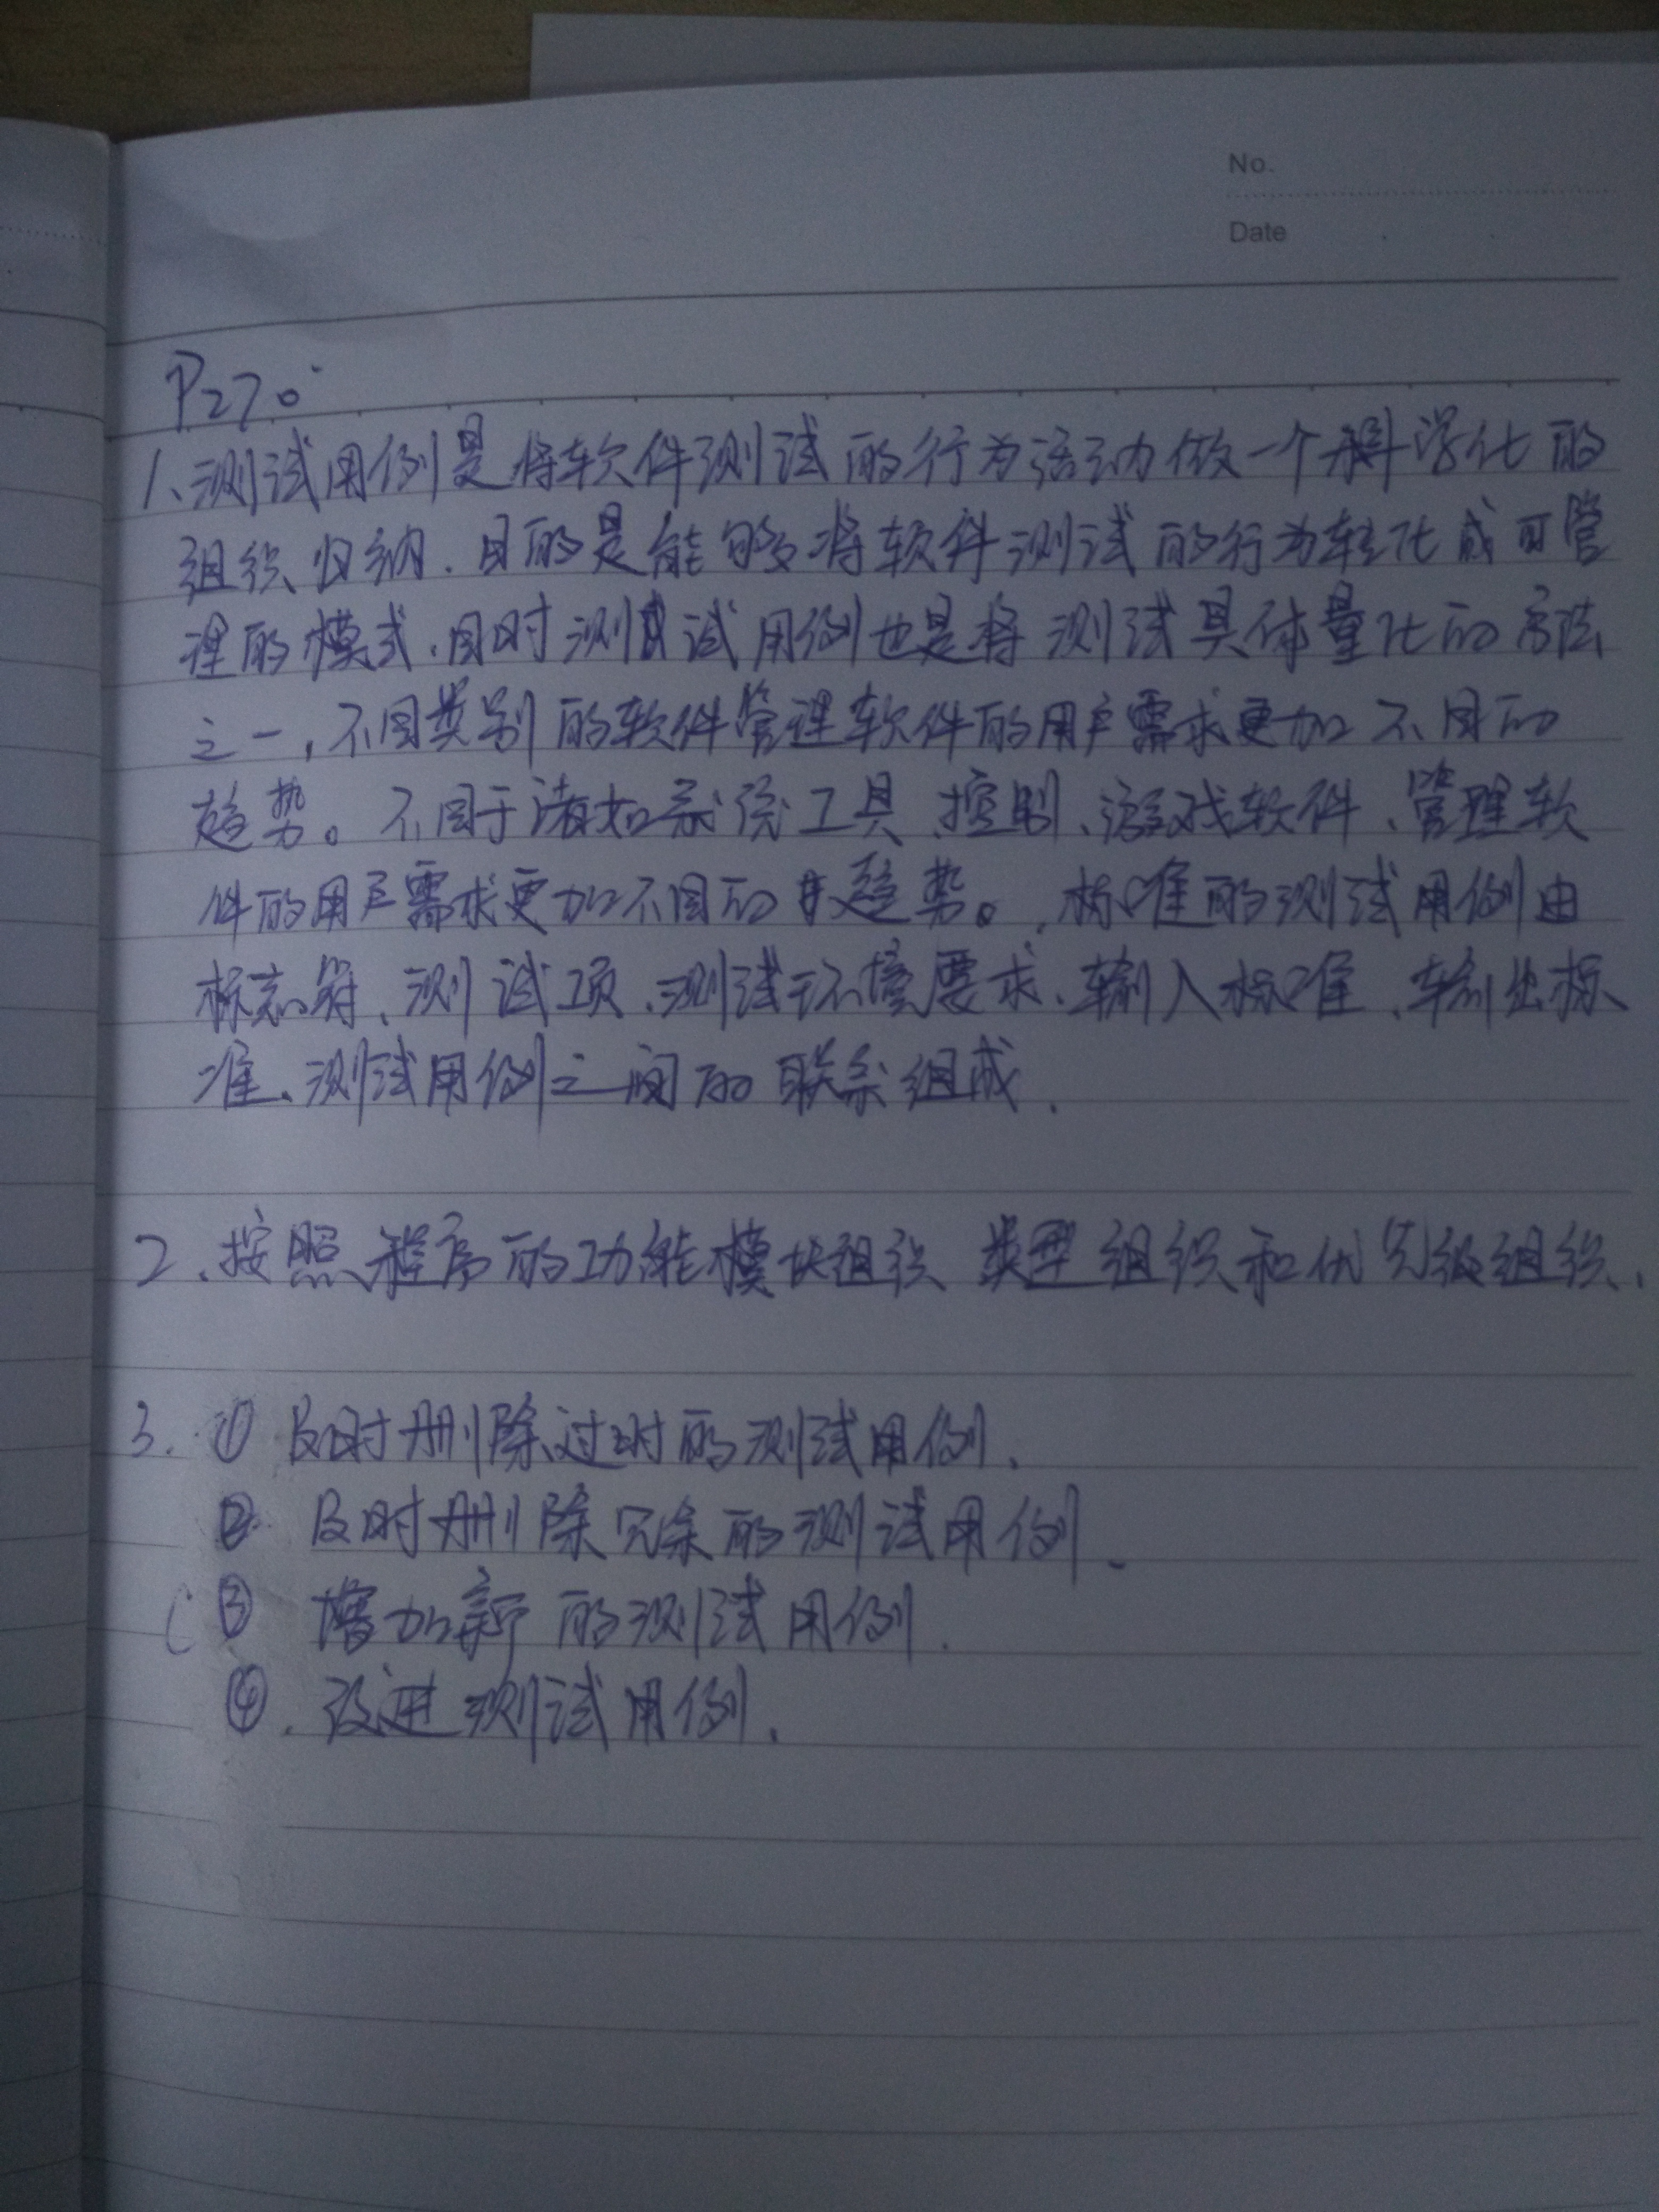 No.
Date
P270
1、测试用例是将软件测试的行为活动做一个科学化的
组织归纳.目的是能够将软件测试的行为转化成可管
理的模式.同时测试用例也是将测试具体量化的方法
之一,不同类别的软件管理软件的用户需求更加不同的
趋势。不同于诸如系统工具、控制、游戏软件、管理软
件的用户需求更加不同的趋势。,标准的测试用例由
标志符、测试项、测试环境要求、输入标准、输出标
准、测试用例之间的联系组成.
2、按照程序的功能模块组织 类型组织和优先级组织、
3. ① 及时删除过时的测试用例.
② 及时删除冗余的测试用例.
③ 增加新的测试用例.
④. 改进测试用例.